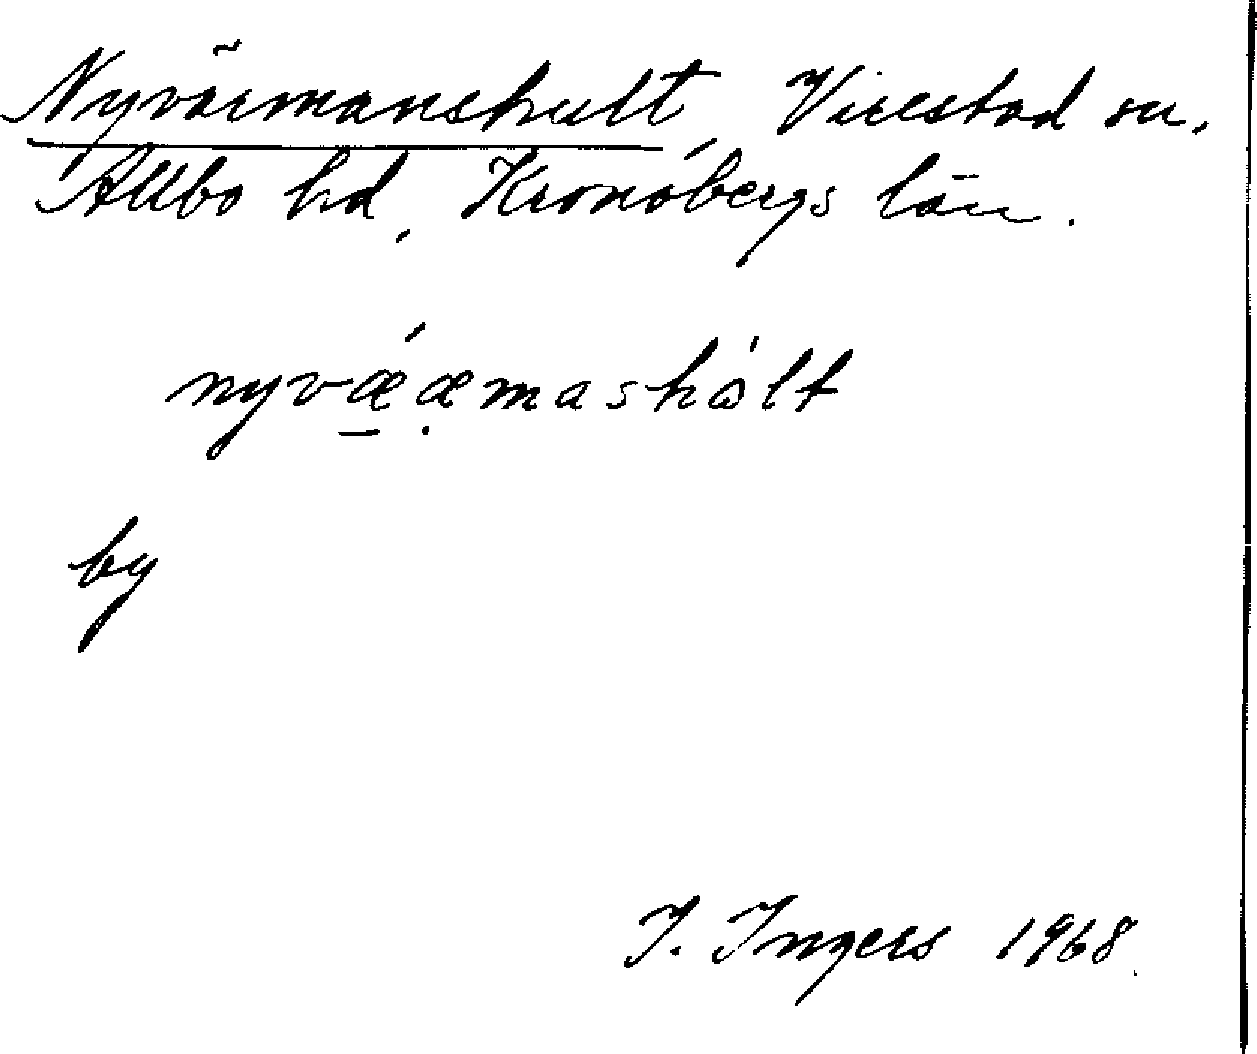 Nyvärmanshult, Virestad sn.
Allbo hd, Kronobergs län.
nyvǽæ̣mashòlt
by
I. Ingers 1968.